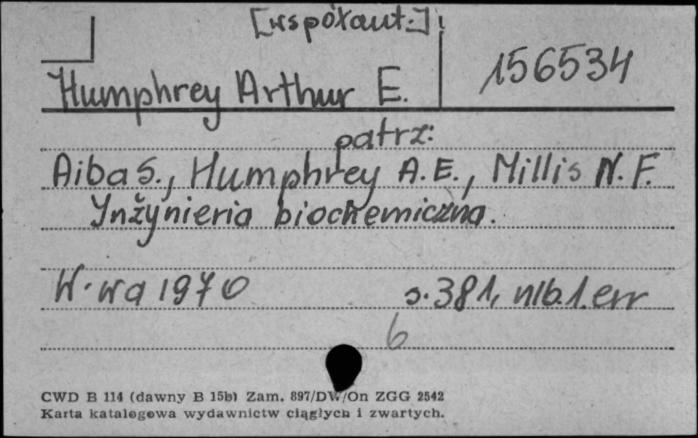 [współaut.]
Humphrey Arthur E.
156534
patrz:
Aiba S., Humphrey A.E., Millis N.F.
Inżynieria biochemiczna.
W-wa 1970 s.381, nlb.1.err
6
CWD B 114 (dawny B 15b) Zam. 897/DW/On ZGG 2542
Karta katalogowa wydawnictw ciągłych i zwartych.